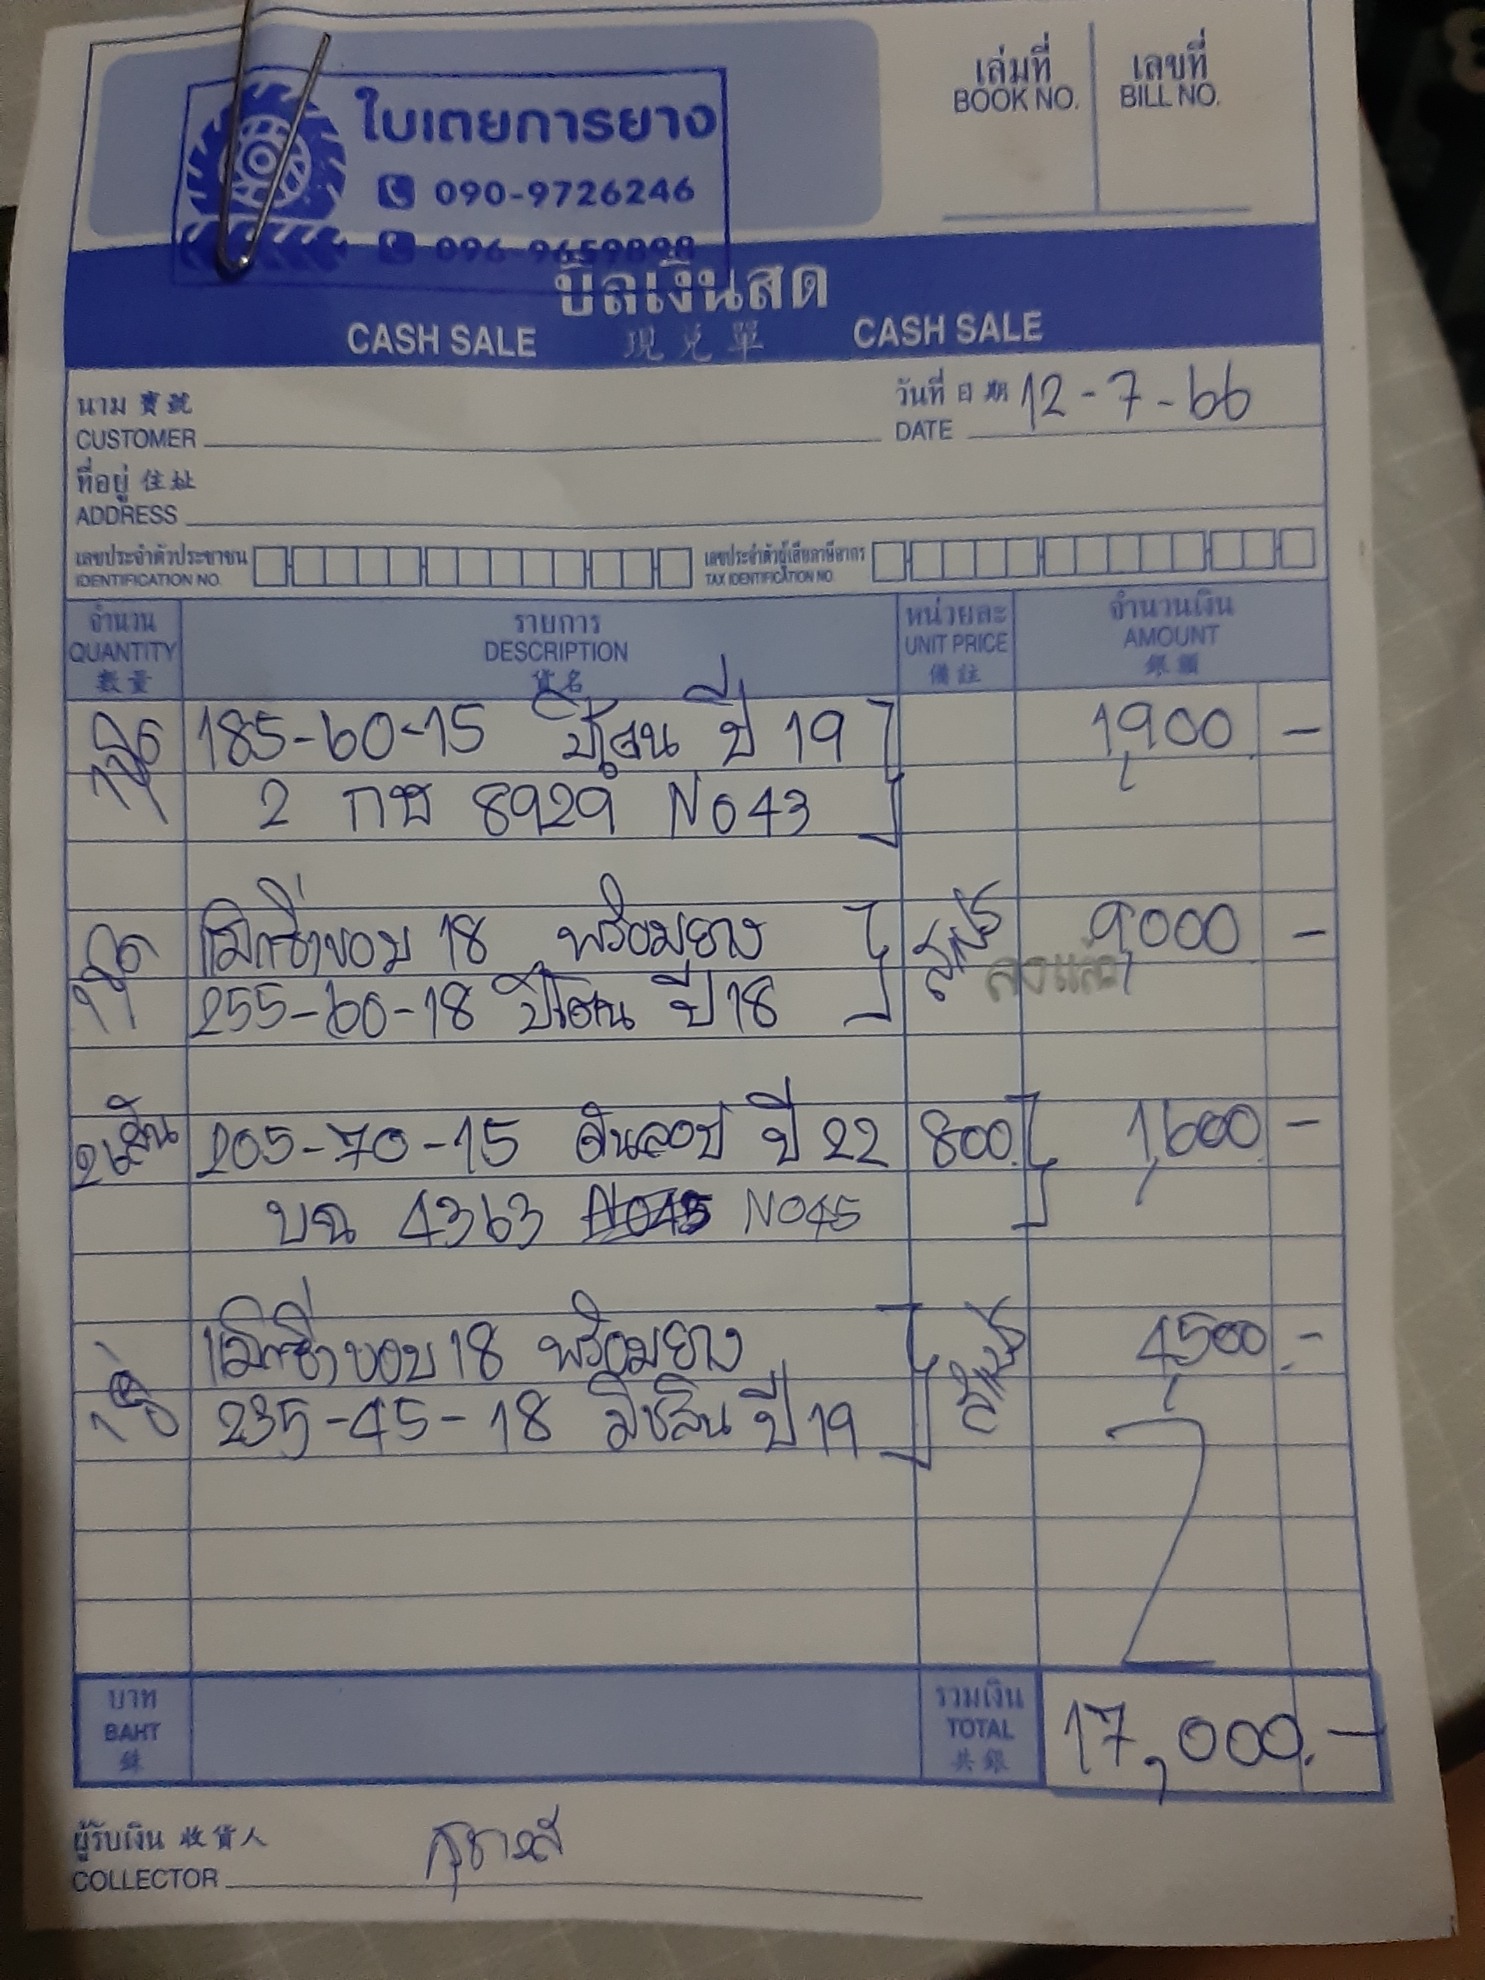 เล่มที่ เลขที่
BOOK NO. BILL NO.
ใบเตยการยาง
090-9726246
096-9659898
บิลเงินสด
CASH SALE 現兌單 CASH SALE
นาม 寶號 วันที่ 日期 12-7-66
CUSTOMER DATE
ที่อยู่ 住址
ADDRESS
เลขประจำตัวประชาชน เลขประจำตัวผู้เสียภาษีอากร
IDENTIFICATION NO. TAX IDENTIFICATION NO.
จำนวน รายการ หน่วยละ จำนวนเงิน
QUANTITY DESCRIPTION UNIT PRICE AMOUNT
數量 貨名 備註 銀額
185-60-15 ปี 19 1,900 -
2 กช 8929 NO43
แม็กซิ่งขอบ 18 พร้อมยาง 9,000 -
255-60-18 ปี 18 ลงแล้ว
2 เส้น 205-70-15 ดันลอป ปี 22 800 1,600 -
บฉ 4363 NO45
แม็กซิ่งขอบ 18 พร้อมยาง 4,500 -
235-45-18 มิชลิน ปี 19
บาท รวมเงิน
BAHT TOTAL 17,000.-
銖 共銀
ผู้รับเงิน 收貨人
COLLECTOR